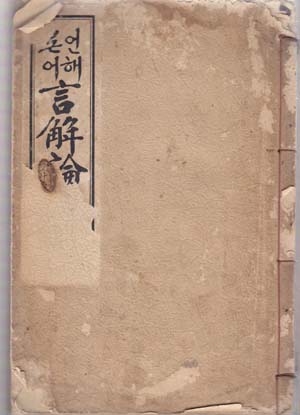 언해
론어
言解論